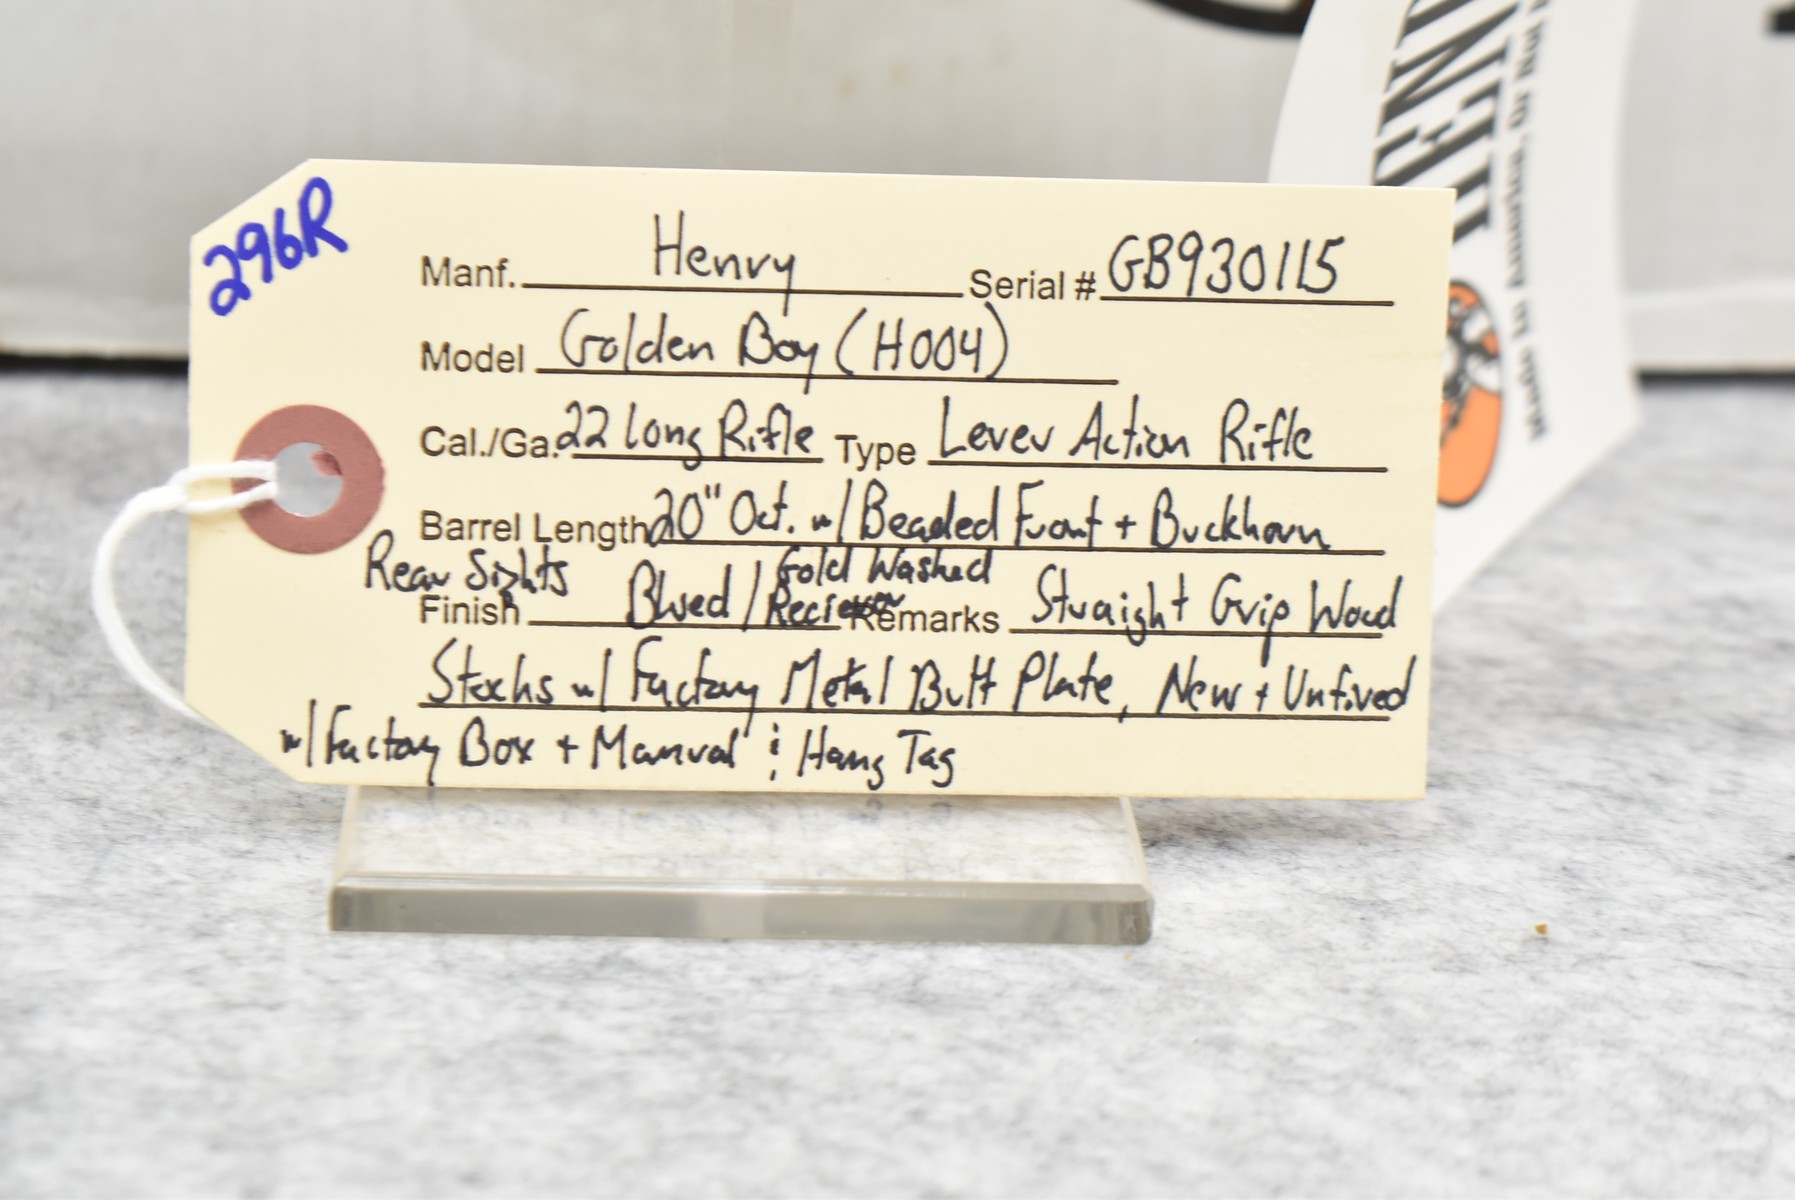 296R
Manf. Henry Serial # GB930115
Model Golden Boy (H004)
Cal./Ga. 22 Long Rifle Type Lever Action Rifle
Barrel Length 20" Oct. w/ Beaded Front + Buckhorn
Rear Sights
Finish Blued / Gold Washed Reciever Remarks Straight Grip Wood
Stocks w/ Factory Metal Butt Plate, New + Unfired
w/ Factory Box + Manual & Hang Tag
HEN
Made in America, Or Not